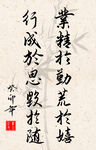 業精於勤荒於嬉
行成於思毀於隨
癸卯年